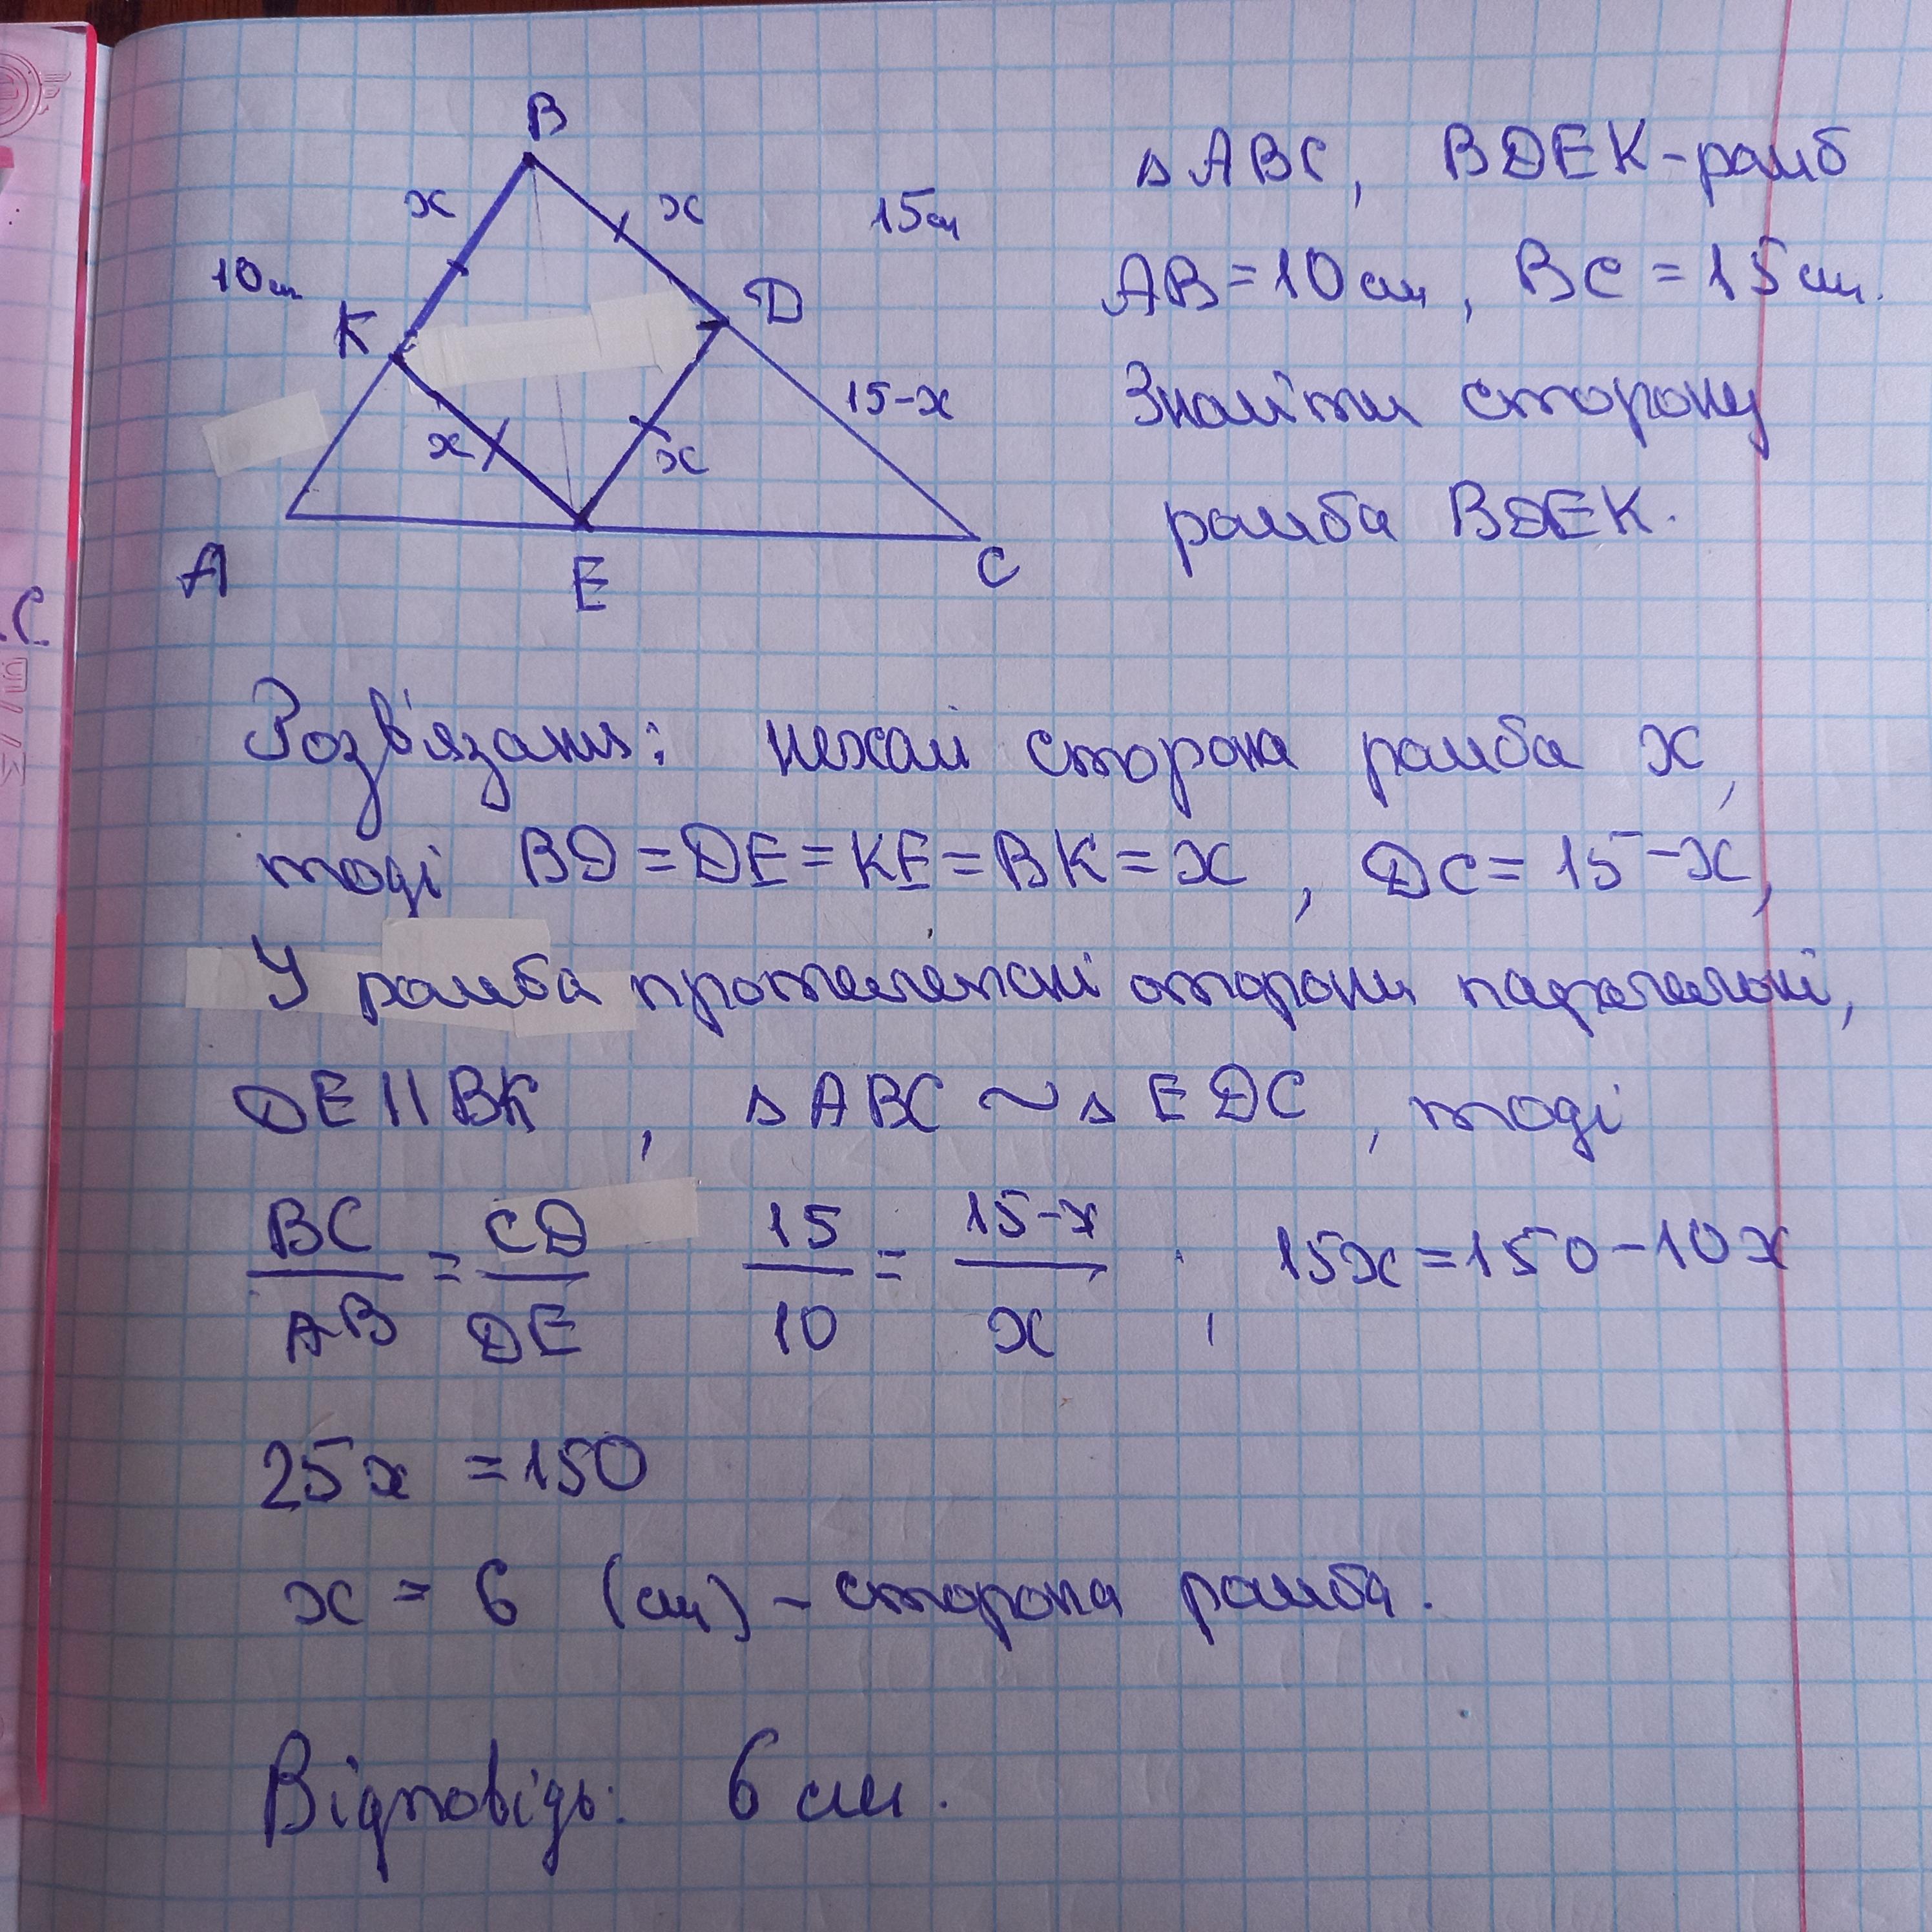 B
x
x
15см
10см
K
D
15-x
x
x
A
E
C
△ABC, BDEK-ромб
AB=10см, BC=15см.
Знайти сторону
ромба BDEK.
Розв'язання: нехай сторона ромба x,
тоді BD=DE=KE=BK=x, DC=15-x,
У ромба протилежні сторони паралельні,
DE||BK, △ABC~△EDC, тоді
BC/AB = CD/DE 15/10 = 15-x/x ; 15x=150-10x
25x =150
x = 6 (см) - сторона ромба.
Відповідь: 6 см.
.С